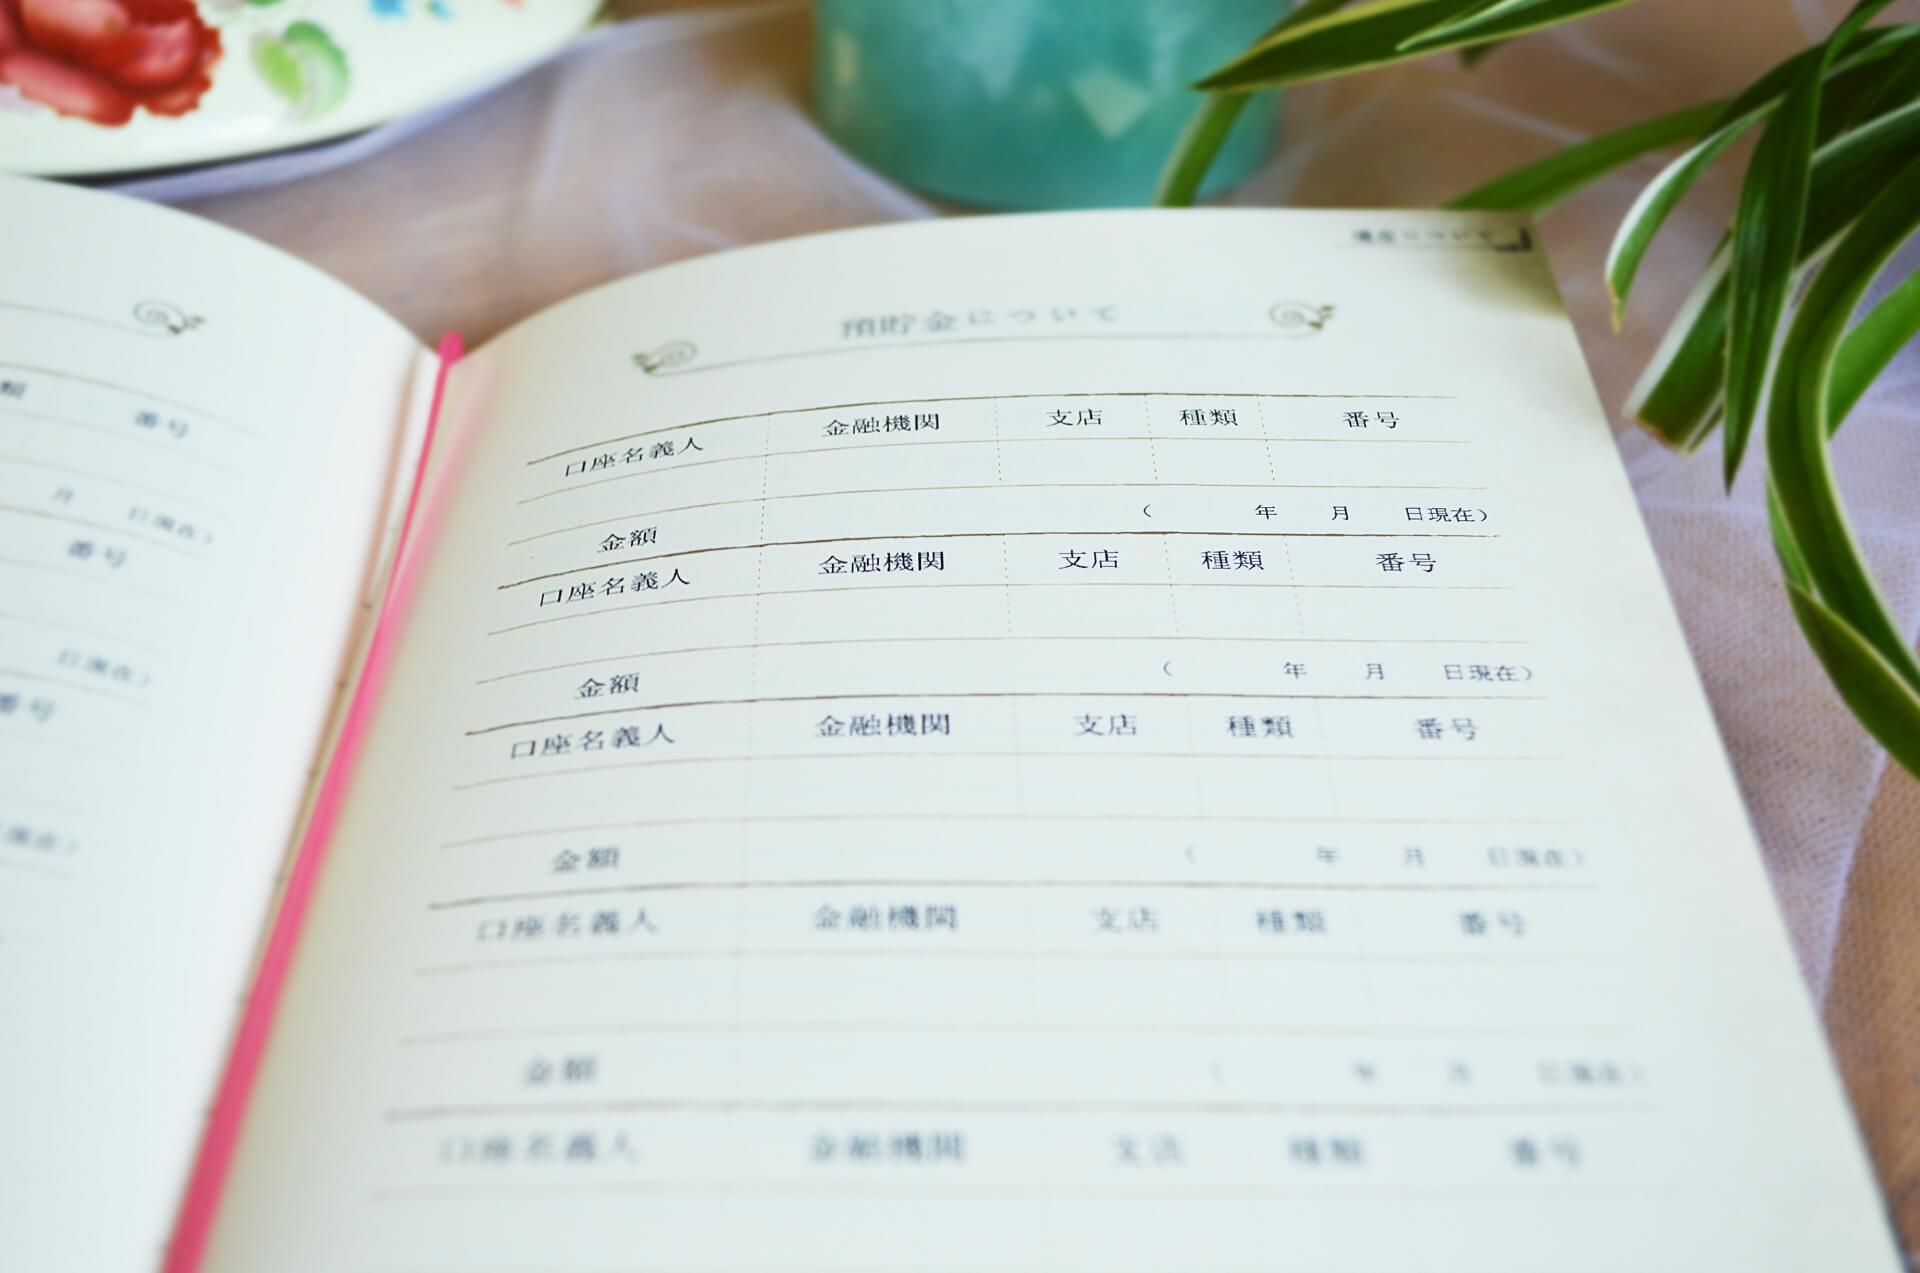 番号
月 日現在）
番号
日現在）
番号
遺産について
預貯金について
口座名義人 金融機関 支店 種類 番号
金額 （ 年 月 日現在）
口座名義人 金融機関 支店 種類 番号
金額 （ 年 月 日現在）
口座名義人 金融機関 支店 種類 番号
金額 （ 年 月 日現在）
口座名義人 金融機関 支店 種類 番号
金額 （ 年 月 日現在）
口座名義人 金融機関 支店 種類 番号